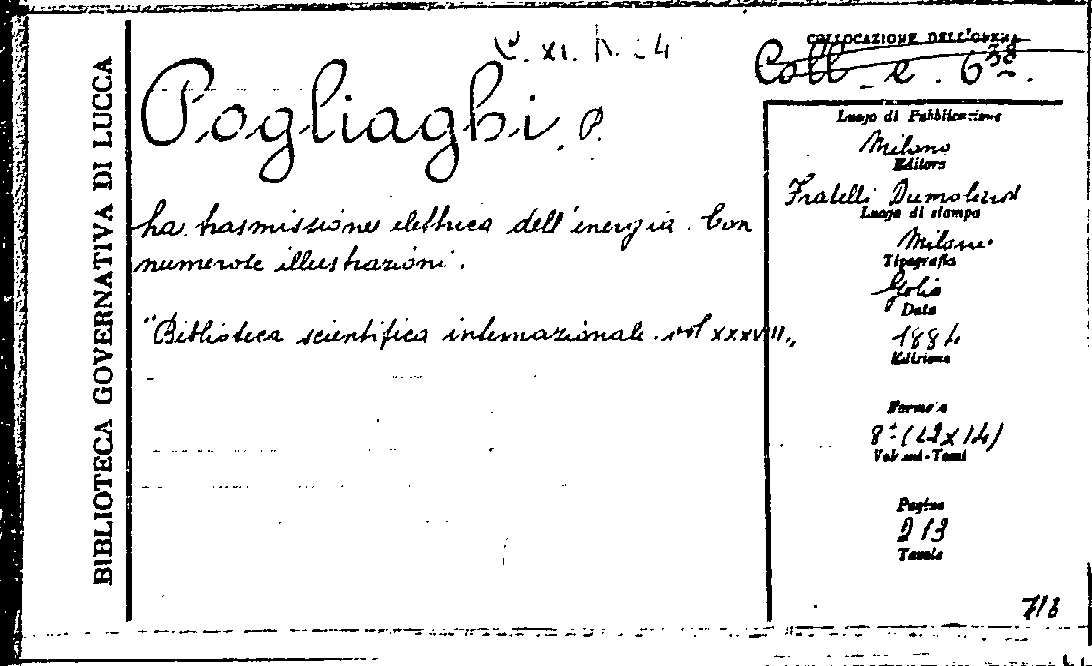 BIBLIOTECA GOVERNATIVA DI LUCCA
C. XI. h. 4
COLLOCAZIONE DELL'OPERA
Coll e. 638.
Pogliaghi, P.
La trasmissione elettrica dell'energia. Con
numerose illustrazioni.
"Biblioteca scientifica internazionale. vol XXXVIII„
Luogo di Pubblicazione
Milano
Editore
Fratelli Dumolard
Luogo di stampa
Milano.
Tipografia
Golio
Data
Edizione
Formato
Volumi-Tomi
Pagine
213
Tavole